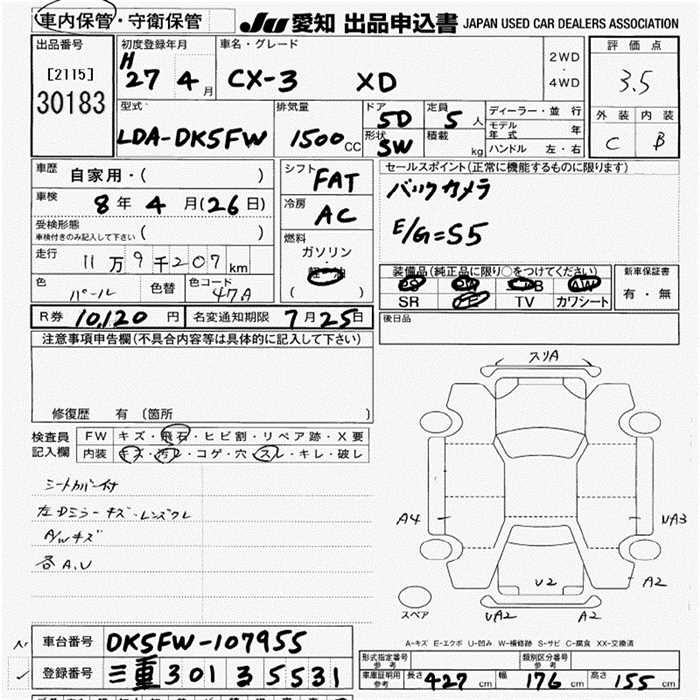 車内保管・守衛保管 JU 愛知 出品申込書 JAPAN USED CAR DEALERS ASSOCIATION
出品番号 [2115] 30183
初度登録年月 H 27 4 月
車名・グレード CX-3 XD
2WD・4WD
評価点 3.5
外装 内装
C B
型式 LDA-DK5FW
排気量 1500 CC
ドア 5D 定員 5 人
形状 SW 積載 kg
ディーラー・並行
モデル年式 年
ハンドル 左・右
車歴 自家用・( )
車検 8 年 4 月 (26 日)
受検形態 車検付きのみ記入して下さい ( )
走行 11 万 9 千 207 km
色 パール 色替 色コード 47A
シフト FAT
冷房 AC
燃料 ガソリン・軽油
( )
セールスポイント(正常に機能するものに限ります)
バックカメラ
E/G=S5
装備品(純正品に限り○をつけてください)
PS PW AW
SR TV カワシート
新車保証書 有・無
R券 10,120 円 名変通知期限 7 月 25 日
後日品
注意事項申告欄(不具合内容等は具体的に記入して下さい)
修復歴 有 (箇所 )
検査員記入欄
FW キズ・飛石・ヒビ割・リペア跡・X要
内装 キズ・汚レ・コゲ・穴・スレ・キレ・破レ
シートカバー付
左Dミラーキズ・レンズワレ
A/Wキズ
各A.U
スリA
A4
A3
U2
A2
UA2
A2
スペア
A-キズ E-エクボ U-凹み W-補修跡 S-サビ C-腐食 XX-交換済
車台番号 DK5FW-107955
登録番号 三重 301 35531
形式指定番号 参考 類別区分番号 参考
車庫証明用 参考 長さ 427 cm 幅 176 cm 高さ 155 cm